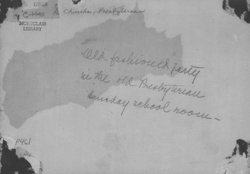 Church - Presbyterian
MONTCLAIR
LIBRARY
Old fashioned party
in the old Presbyterian
Sunday school room -